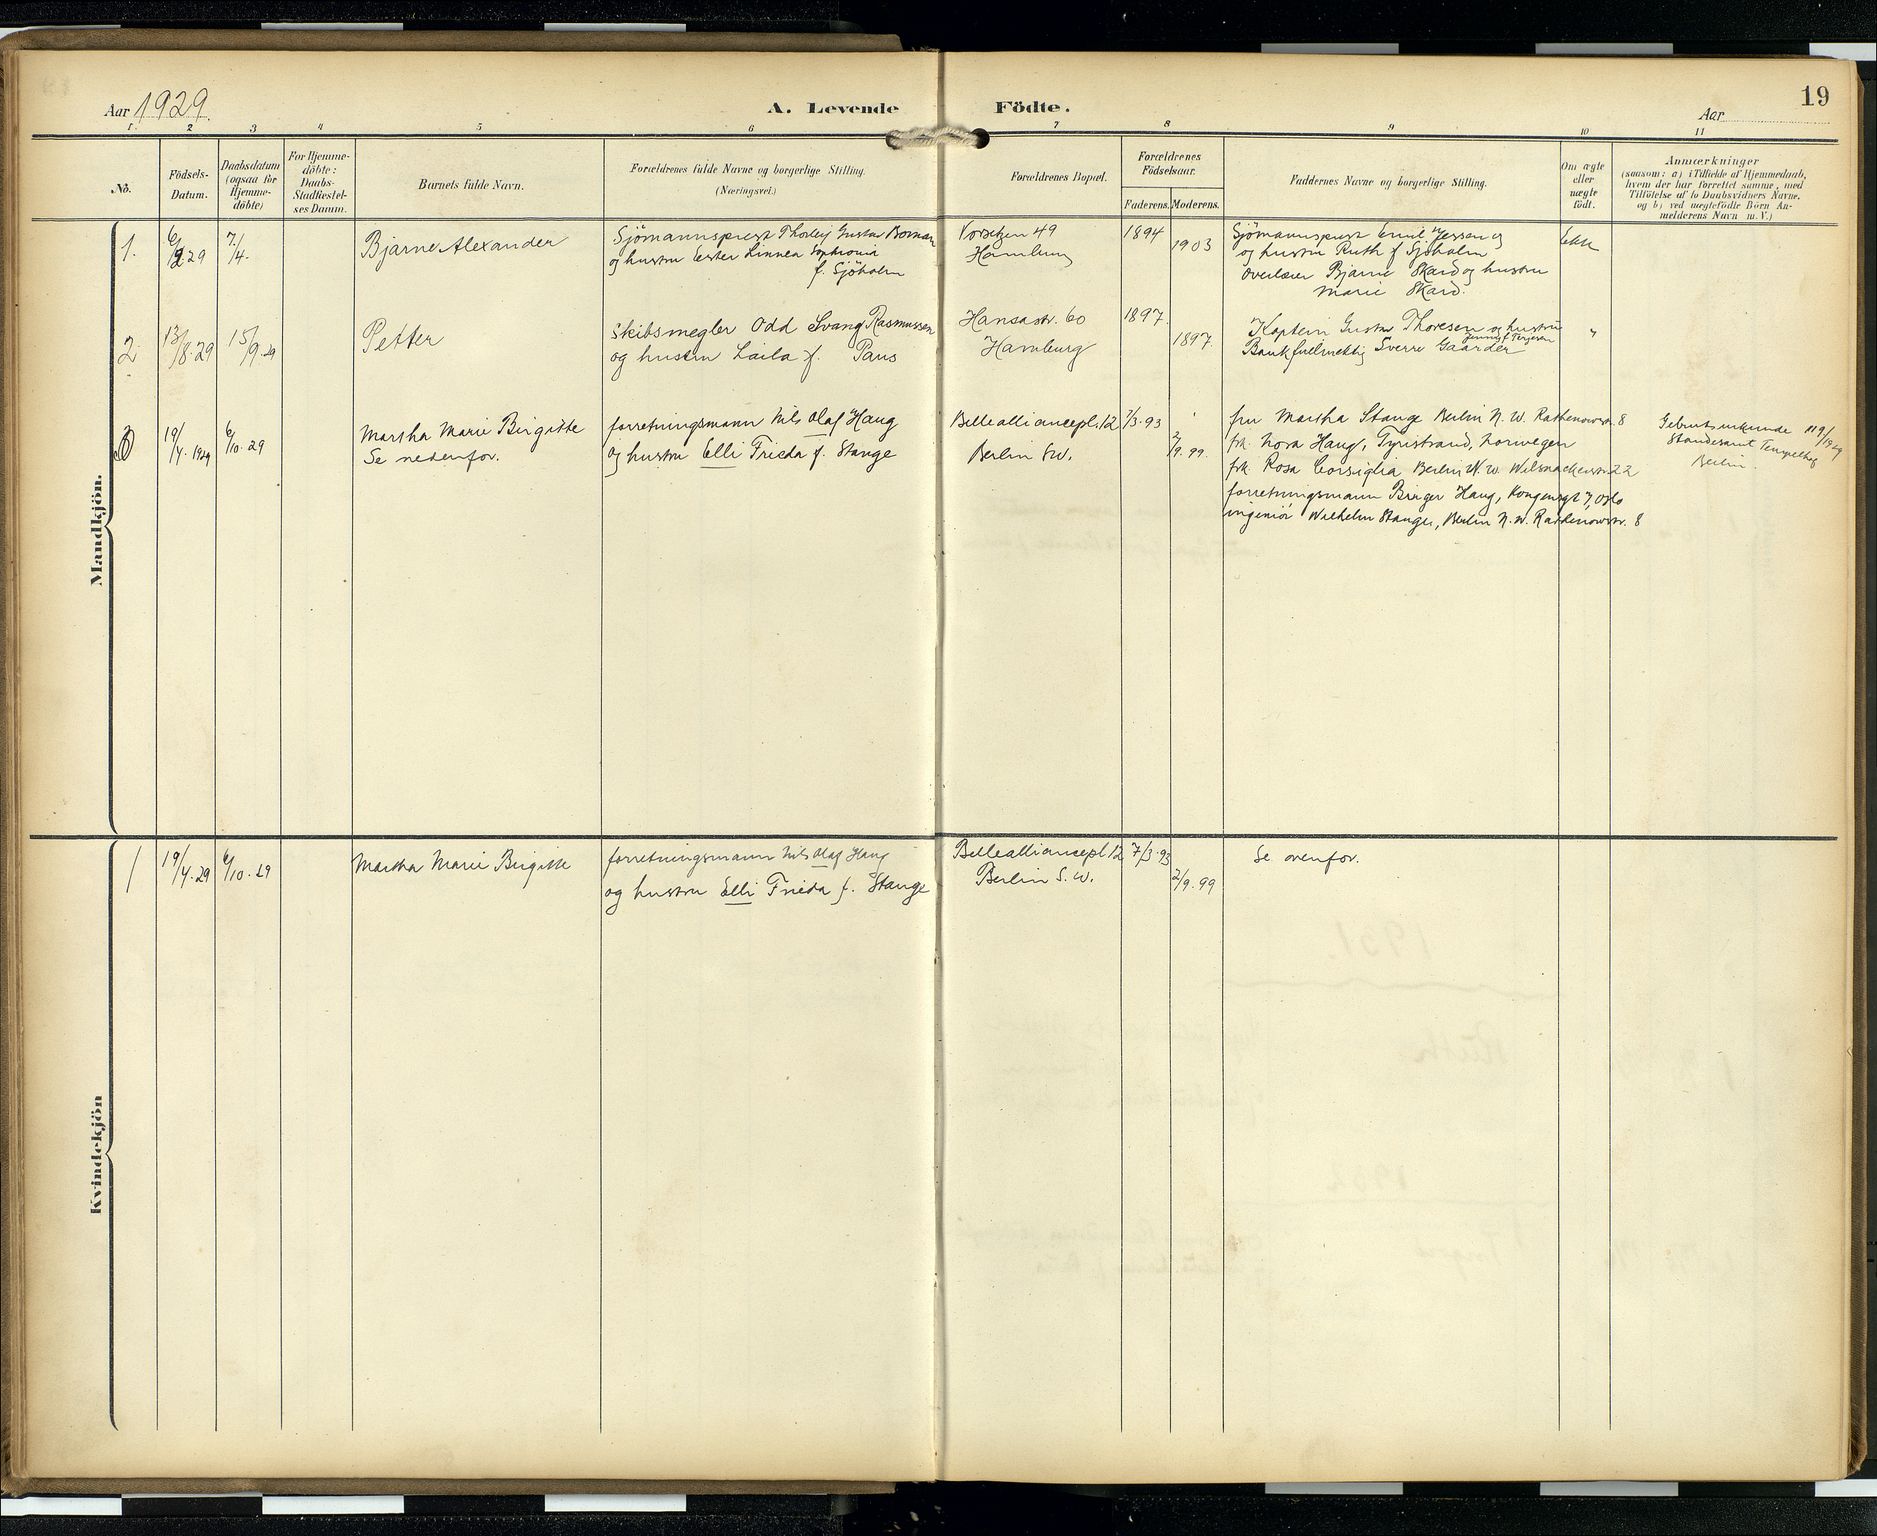 19
Aar 1929.
A. Levende Födte.
Aar
1. 2 3 4 5 6 7 8 9 10 11
No.
Födsels-
Datum.
Daabsdatum
(ogsaa for
Hjemme-
döbte)
For Hjemme-
döbte:
Daabs-
Stadfæstel-
ses Datum.
Barnets fulde Navn.
Forældrenes fulde Navne og borgerlige Stilling.
(Næringsvei.)
Forældrenes Bopæl.
Forældrenes
Födselsaar.
Faderens. Moderens.
Faddernes Navne og borgerlige Stilling.
Om ægte
eller
uægte
født.
Anmærkninger
(saasom: a) i Tilfælde af Hjemmedaab,
hvem der har forrettet samme, med
Tilföielse af to Daabsvidners Navne,
og b) ved uægtefödte Börn An-
melderens Navn m. V.)
Mandkjön.
1.
6/2 29
7/4.
Bjarne Alexander
Sjömannsprest Thorleif Gustav Boman
og hustru Ester Linnea Sophronia
f. Sjöholm
Vorsetzen 49
Hamburg
1894
1903
Sjömannsprest Emil Jessen og
og hustru Ruth f Sjöholm
Overlærer Bjarne Skard og hustru
Marie Skard.
Ekte
2.
13/8.29
15/9.29
Petter
Skibsmegler Odd Svang Rasmussen
og hustru Laila f. Paus
Hansastr. 60
Hamburg
1897.
1897.
Kaptein Gustav Thoresen og hustru
Jenny f. Terjesen
Bankfullmektig Sverre Gaarder
"
3
19/4.1929
6/10.29
Martha Marie Birgitte
Se nedenfor.
forretningsmann Nils Olaf Haug
og hustru Elli Frieda f. Stange
Bellealliancepl. 12
Berlin SW.
7/3.93
2/9.99.
fru Martha Stange Berlin N.W. Rathenowstr. 8
frk. Nora Haug, Tyristrand, Norwegen
frk. Rosa Corsiglia Berlin N.W. Wilsnackerstr. 22
forretningsmann Birger Haug, Kongensgt 7, Oslo
ingeniör Wilhelm Stange, Berlin N.W. Rathenowstr. 8
Geburtsurkunde 119/1929
Standesamt Tempelhof
Berlin.
Kvindekjön
1
19/4.29
6/10.29
Martha Marie Birgitte
forretningsmann Nils Olaf Haug
og hustru Elli Frieda f. Stange
Bellealliancepl 12
Berlin S.W.
7/3.93
2/9.99
Se ovenfor.